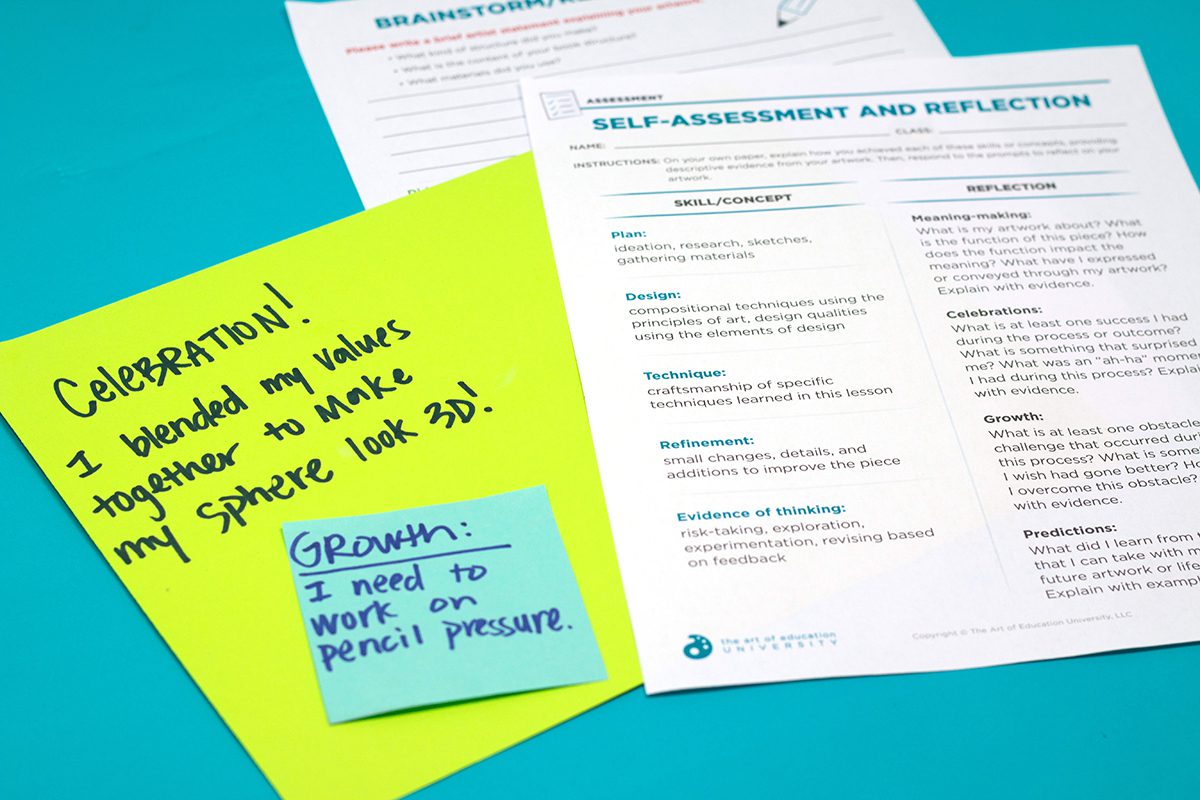 BRAINSTORM/
Please write a brief artist statement explaining your artwork.
• What kind of structure did you make?
• What is the content of your book structure?
• What materials did you use?
ASSESSMENT
SELF-ASSESSMENT AND REFLECTION
NAME:
CLASS:
INSTRUCTIONS: On your own paper, explain how you achieved each of these skills or concepts, providing
descriptive evidence from your artwork. Then, respond to the prompts to reflect on your
artwork.
SKILL/CONCEPT
Plan:
ideation, research, sketches,
gathering materials
Design:
compositional techniques using the
principles of art, design qualities
using the elements of design
Technique:
craftsmanship of specific
techniques learned in this lesson
Refinement:
small changes, details, and
additions to improve the piece
Evidence of thinking:
risk-taking, exploration,
experimentation, revising based
on feedback
REFLECTION
Meaning-making:
What is my artwork about? What
is the function of this piece? How
does the function impact the
meaning? What have I expressed
or conveyed through my artwork?
Explain with evidence.
Celebrations:
What is at least one success I had
during the process or outcome?
What is something that surprised
me? What was an "ah-ha" mome
I had during this process? Explai
with evidence.
Growth:
What is at least one obstacle
challenge that occurred duri
this process? What is some
I wish had gone better? Ho
I overcome this obstacle?
with evidence.
Predictions:
What did I learn from t
that I can take with m
future artwork or life
Explain with examp
the art of education
UNIVERSITY
Copyright © The Art of Education University, LLC
CeleBRATION!
I blended my values
together to Make
my sphere look 3D!
GRowth:
I need to
work on
pencil pressure.